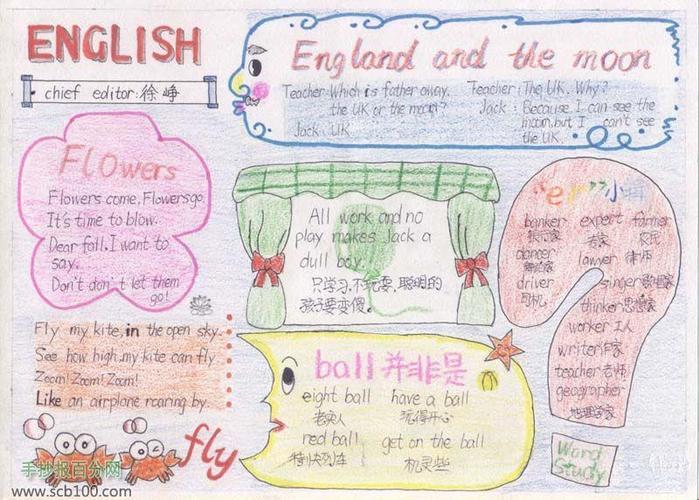 ENGLISH
chief editor:徐峥
England and the moon
Teacher:Which is father away,
the UK or the moon?
Jack: UK
Teacher:The UK. Why?
Jack: Because I can see the
moon,but I can't see
the UK.
Flowers
Flowers come,Flowers go.
It's time to blow.
Dear fall,I want to
say.
Don't don't let them
go!
All work and no
play makes Jack a
dull boy.
只学习,不玩耍,聪明的
孩子要变傻。
"er"小
banker expert farmer
银行家 专家 农民
dancer lawyer 律师
舞蹈家
driver singer歌唱家
司机
thinker思想家
worker工人
writer作家
teacher老师
geographer
地理学家
Word
Study
Fly my kite,in the open sky.
See how high,my kite can fly
Zoom! Zoom! Zoom!
Like an airplane roaring by.
fly
ball并非是
eight ball have a ball
老实人 玩得开心
red ball get on the ball
特别快列车 机灵些
手抄报百分网
www.scb100.com